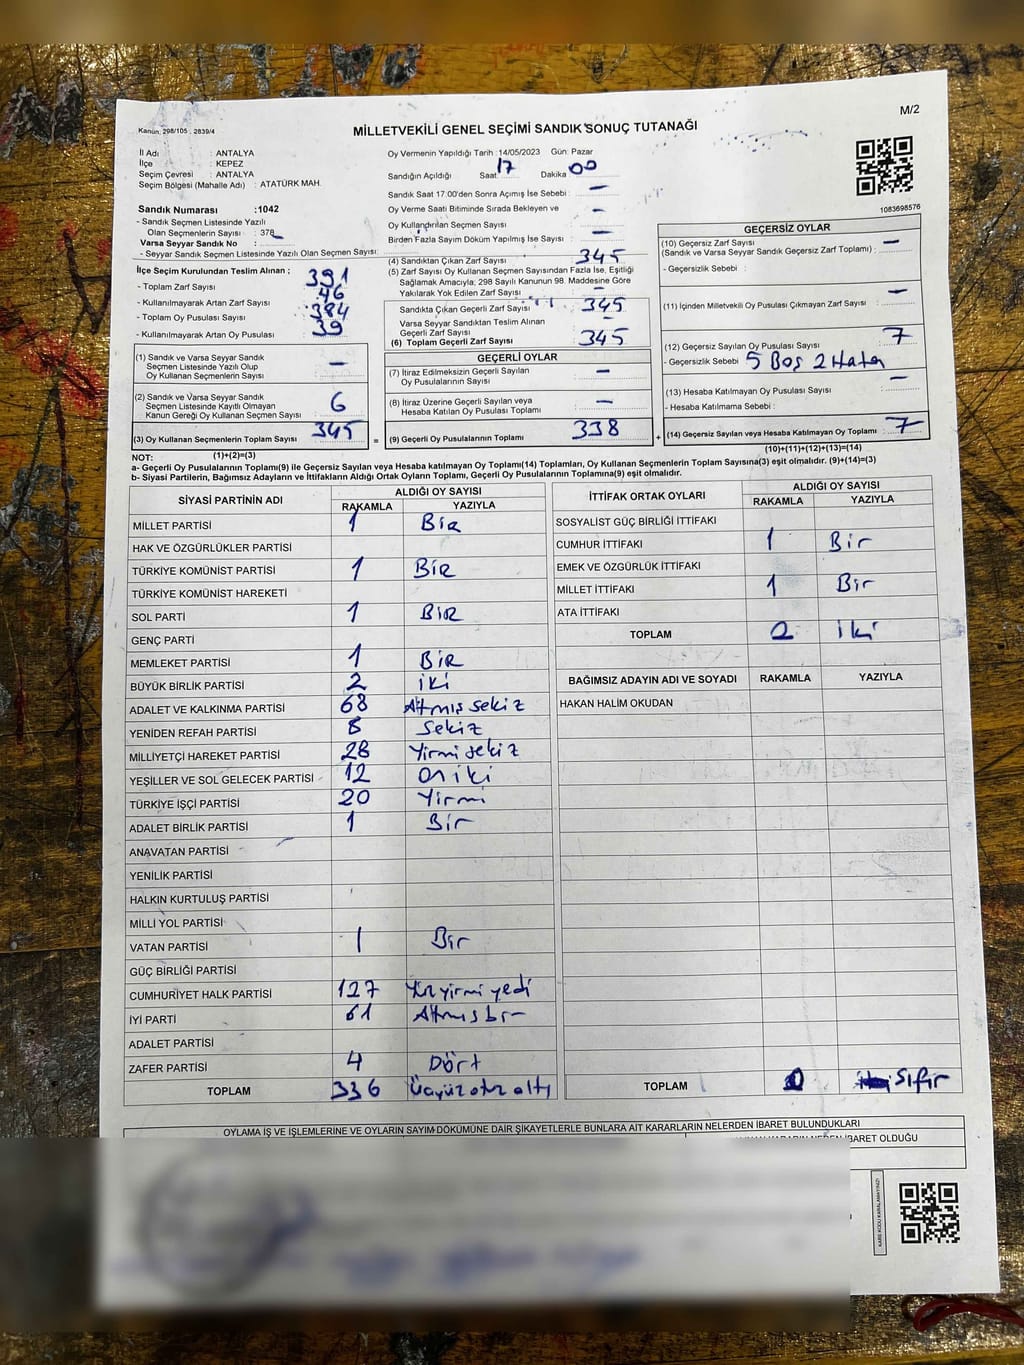 M/2
Kanun: 298/105 , 2839/4
MİLLETVEKİLİ GENEL SEÇİMİ SANDIK SONUÇ TUTANAĞI
İl Adı : ANTALYA
İlçe : KEPEZ
Seçim Çevresi : ANTALYA
Seçim Bölgesi (Mahalle Adı) : ATATÜRK MAH.
Sandık Numarası :1042
- Sandık Seçmen Listesinde Yazılı
Olan Seçmenlerin Sayısı : 378
Varsa Seyyar Sandık No :
- Seyyar Sandık Seçmen Listesinde Yazılı Olan Seçmen Sayısı:
İlçe Seçim Kurulundan Teslim Alınan ;
- Toplam Zarf Sayısı : 391
- Kullanılmayarak Artan Zarf Sayısı : 46
- Toplam Oy Pusulası Sayısı : 384
- Kullanılmayarak Artan Oy Pusulası : 39
(1) Sandık ve Varsa Seyyar Sandık
Seçmen Listesinde Yazılı Olup
Oy Kullanan Seçmenlerin Sayısı –
(2) Sandık ve Varsa Seyyar Sandık
Seçmen Listesinde Kayıtlı Olmayan
Kanun Gereği Oy Kullanan Seçmen Sayısı 6
(3) Oy Kullanan Seçmenlerin Toplam Sayısı 345
(1)+(2)=(3)
Oy Vermenin Yapıldığı Tarih :14/05/2023 Gün: Pazar
Sandığın Açıldığı Saat 17 Dakika 00
Sandık Saat 17:00'den Sonra Açımış İse Sebebi : –
Oy Verme Saati Bitiminde Sırada Bekleyen ve
Oy Kullandırılan Seçmen Sayısı : –
Birden Fazla Sayım Döküm Yapılmış İse Sayısı : –
(4) Sandıktan Çıkan Zarf Sayısı : 345
(5) Zarf Sayısı Oy Kullanan Seçmen Sayısından Fazla İse, Eşitliği
Sağlamak Amacıyla; 298 Sayılı Kanunun 98. Maddesine Göre
Yakılarak Yok Edilen Zarf Sayısı : –
Sandıkta Çıkan Geçerli Zarf Sayısı : 345
Varsa Seyyar Sandıktan Teslim Alınan
Geçerli Zarf Sayısı : –
(6) Toplam Geçerli Zarf Sayısı : 345
GEÇERLİ OYLAR
(7) İtiraz Edilmeksizin Geçerli Sayılan
Oy Pusulalarının Sayısı –
(8) İtiraz Üzerine Geçerli Sayılan veya
Hesaba Katılan Oy Pusulası Toplamı –
= (9) Geçerli Oy Pusulalarının Toplamı 338 +
1083698576
GEÇERSİZ OYLAR
(10) Geçersiz Zarf Sayısı –
(Sandık ve Varsa Seyyar Sandık Geçersiz Zarf Toplamı) :
- Geçersizlik Sebebi :
(11) İçinden Milletvekili Oy Pusulası Çıkmayan Zarf Sayısı : –
(12) Geçersiz Sayılan Oy Pusulası Sayısı : 7
- Geçersizlik Sebebi : 5 Boş 2 Hata
(13) Hesaba Katılmayan Oy Pusulası Sayısı : –
- Hesaba Katılmama Sebebi :
(14) Geçersiz Sayılan veya Hesaba Katılmayan Oy Toplamı : 7
(10)+(11)+(12)+(13)=(14)
NOT:
a- Geçerli Oy Pusulalarının Toplamı(9) ile Geçersiz Sayılan veya Hesaba katılmayan Oy Toplamı(14) Toplamları, Oy Kullanan Seçmenlerin Toplam Sayısına(3) eşit olmalıdır. (9)+(14)=(3)
b- Siyasi Partilerin, Bağımsız Adayların ve İttifakların Aldığı Ortak Oyların Toplamı, Geçerli Oy Pusulalarının Toplamına(9) eşit olmalıdır.
SİYASİ PARTİNİN ADI ALDIĞI OY SAYISI
RAKAMLA YAZIYLA
MİLLET PARTİSİ 1 Bir
HAK VE ÖZGÜRLÜKLER PARTİSİ
TÜRKİYE KOMÜNİST PARTİSİ 1 Bir
TÜRKİYE KOMÜNİST HAREKETİ
SOL PARTİ 1 Bir
GENÇ PARTİ
MEMLEKET PARTİSİ 1 Bir
BÜYÜK BİRLİK PARTİSİ 2 iki
ADALET VE KALKINMA PARTİSİ 68 Atmış sekiz
YENİDEN REFAH PARTİSİ 8 Sekiz
MİLLİYETÇİ HAREKET PARTİSİ 28 Yirmi sekiz
YEŞİLLER VE SOL GELECEK PARTİSİ 12 on iki
TÜRKİYE İŞÇİ PARTİSİ 20 Yirmi
ADALET BİRLİK PARTİSİ 1 Bir
ANAVATAN PARTİSİ
YENİLİK PARTİSİ
HALKIN KURTULUŞ PARTİSİ
MİLLİ YOL PARTİSİ
VATAN PARTİSİ 1 Bir
GÜÇ BİRLİĞİ PARTİSİ
CUMHURİYET HALK PARTİSİ 127 Yüz yirmi yedi
İYİ PARTİ 61 Atmış bir
ADALET PARTİSİ
ZAFER PARTİSİ 4 Dört
TOPLAM 336 Üçyüz otuz altı
İTTİFAK ORTAK OYLARI ALDIĞI OY SAYISI
RAKAMLA YAZIYLA
SOSYALİST GÜÇ BİRLİĞİ İTTİFAKI
CUMHUR İTTİFAKI 1 Bir
EMEK VE ÖZGÜRLÜK İTTİFAKI
MİLLET İTTİFAKI 1 Bir
ATA İTTİFAKI
TOPLAM 2 iki
BAĞIMSIZ ADAYIN ADI VE SOYADI RAKAMLA YAZIYLA
HAKAN HALİM OKUDAN
TOPLAM 0 Sıfır
OYLAMA İŞ VE İŞLEMLERİNE VE OYLARIN SAYIM DÖKÜMÜNE DAİR ŞİKAYETLERLE BUNLARA AİT KARARLARIN NELERDEN İBARET BULUNDUKLARI
KARARIN NEDEN İBARET OLDUĞU
KARE KODU KARALAMAYINIZ!